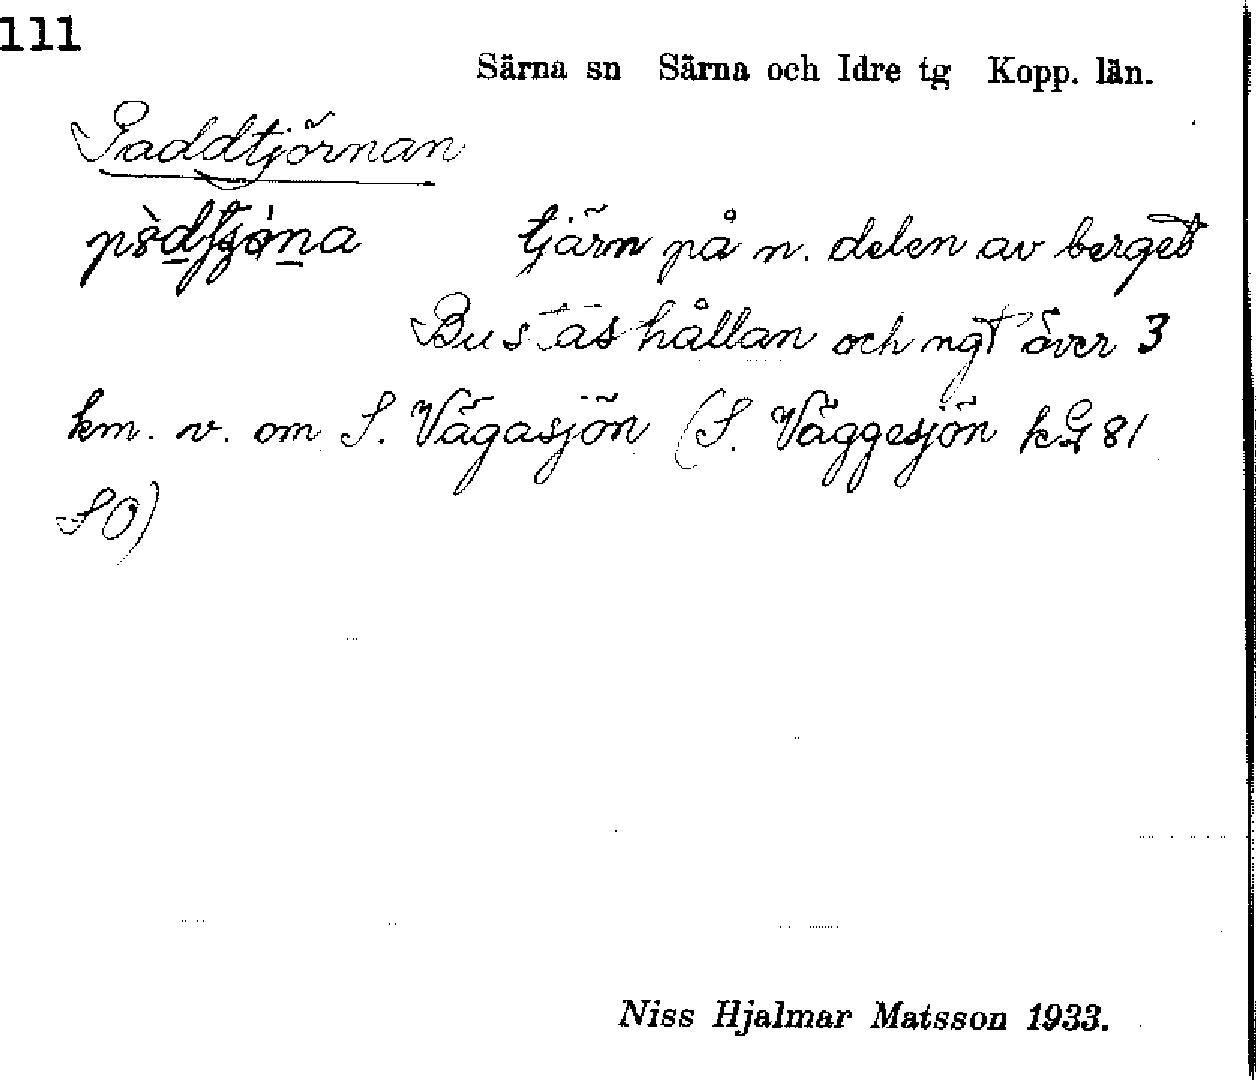 111
Särna sn Särna och Idre tg Kopp. län.
Paddtjörnan
tjärn på n. delen av berget
Bustäshållan och ngt över 3
km. v. om S. Vägasjön (S. Väggesjön kG 81
SO)
Niss Hjalmar Matsson 1933.